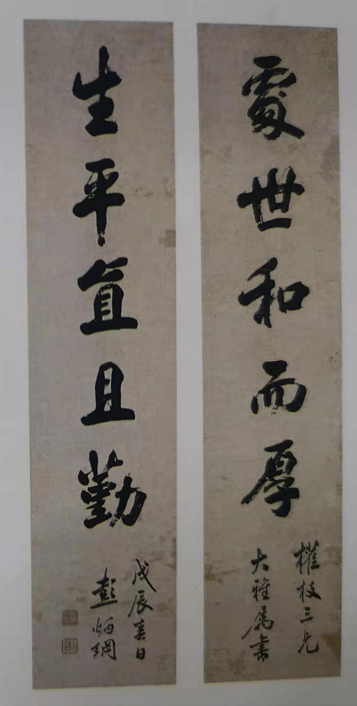 處世和而厚
權枝三兄
大雅屬書
生平直且勤
戊辰春日
彭炳綱